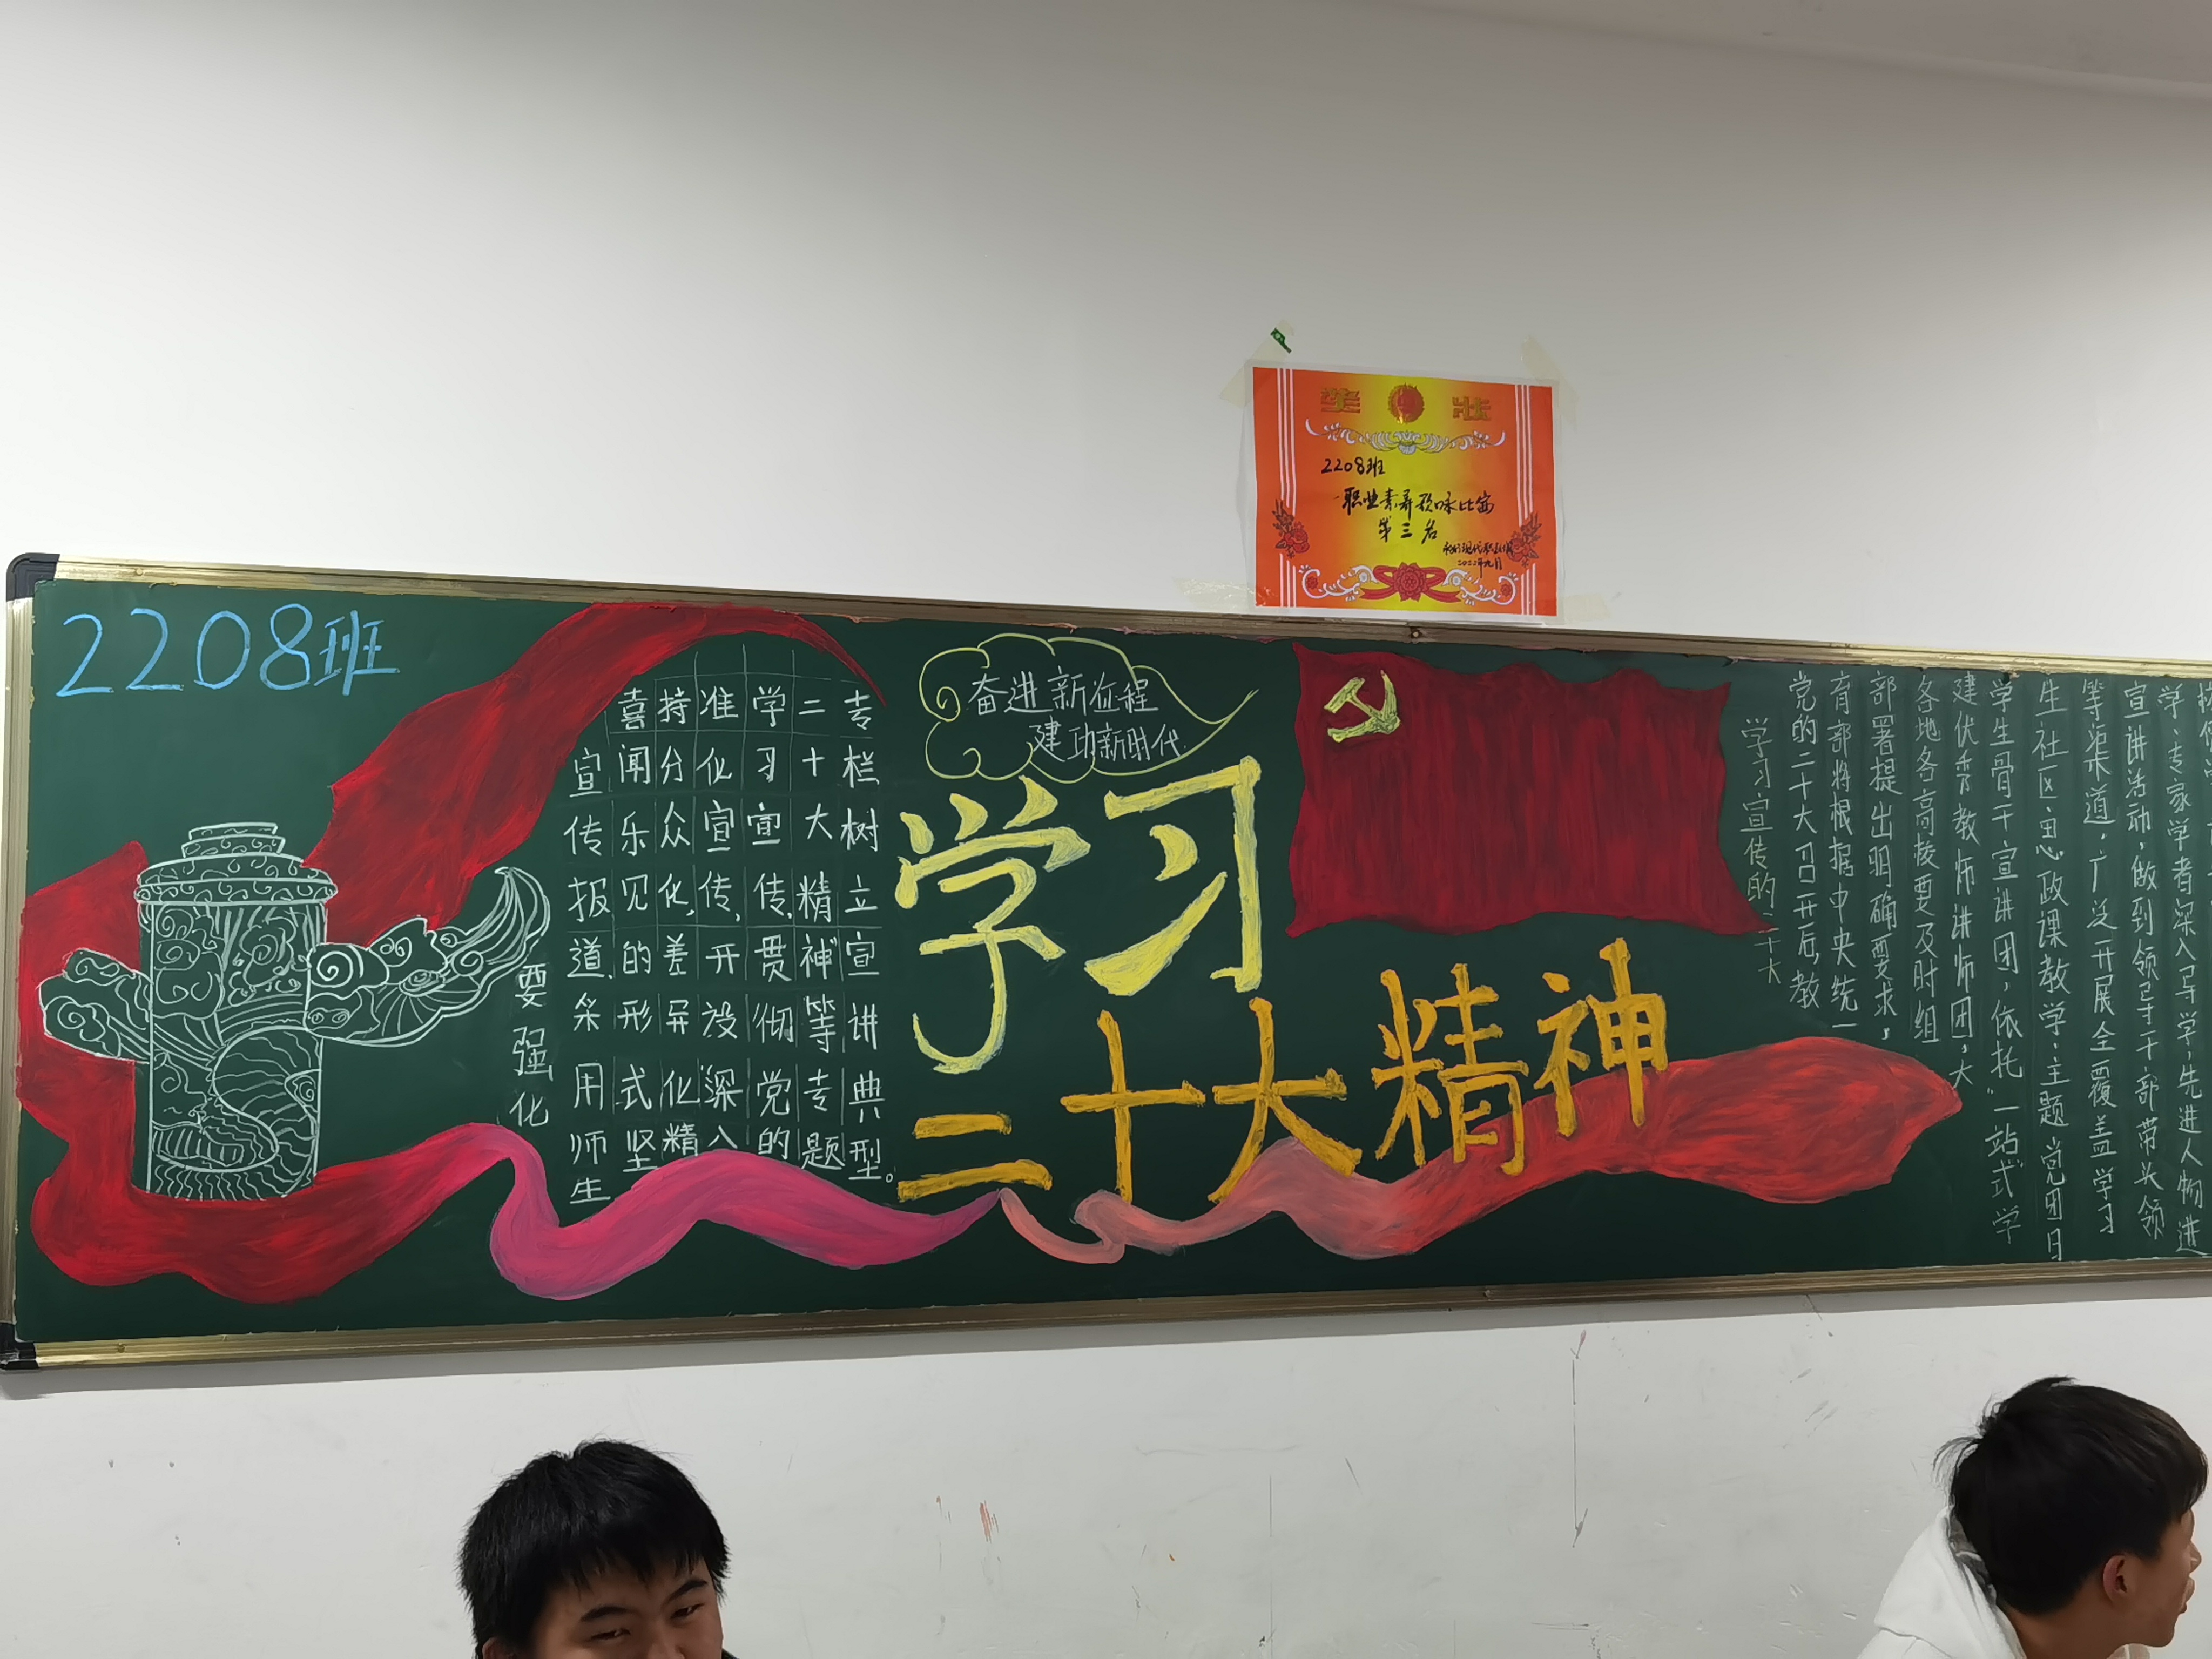 奖状
2208班
职业素养歌咏比赛
第三名
2022年九月
2208班
奋进新征程
建功新时代
学习
二十大精神
要强化
宣传报道,采用师生
喜闻乐见的形式坚
持分众化,差异化精
准化宣传,开设“深入
学习宣传,贯彻党的
二十大精神”等专题
专栏树立宣讲典型。
学习宣传的二十大
党的二十大召开后,教
有部将根据中央统一
部署提出明确要求,
各地各高校要及时组
建优秀教师讲师团,大
学生骨干宣讲团,依托“一站式”学
生社区,思政课教学,主题党团日
等渠道,广泛开展全覆盖学习
宣讲活动,做到领导干部带头领
学,专家学者深入导学,先进人物进